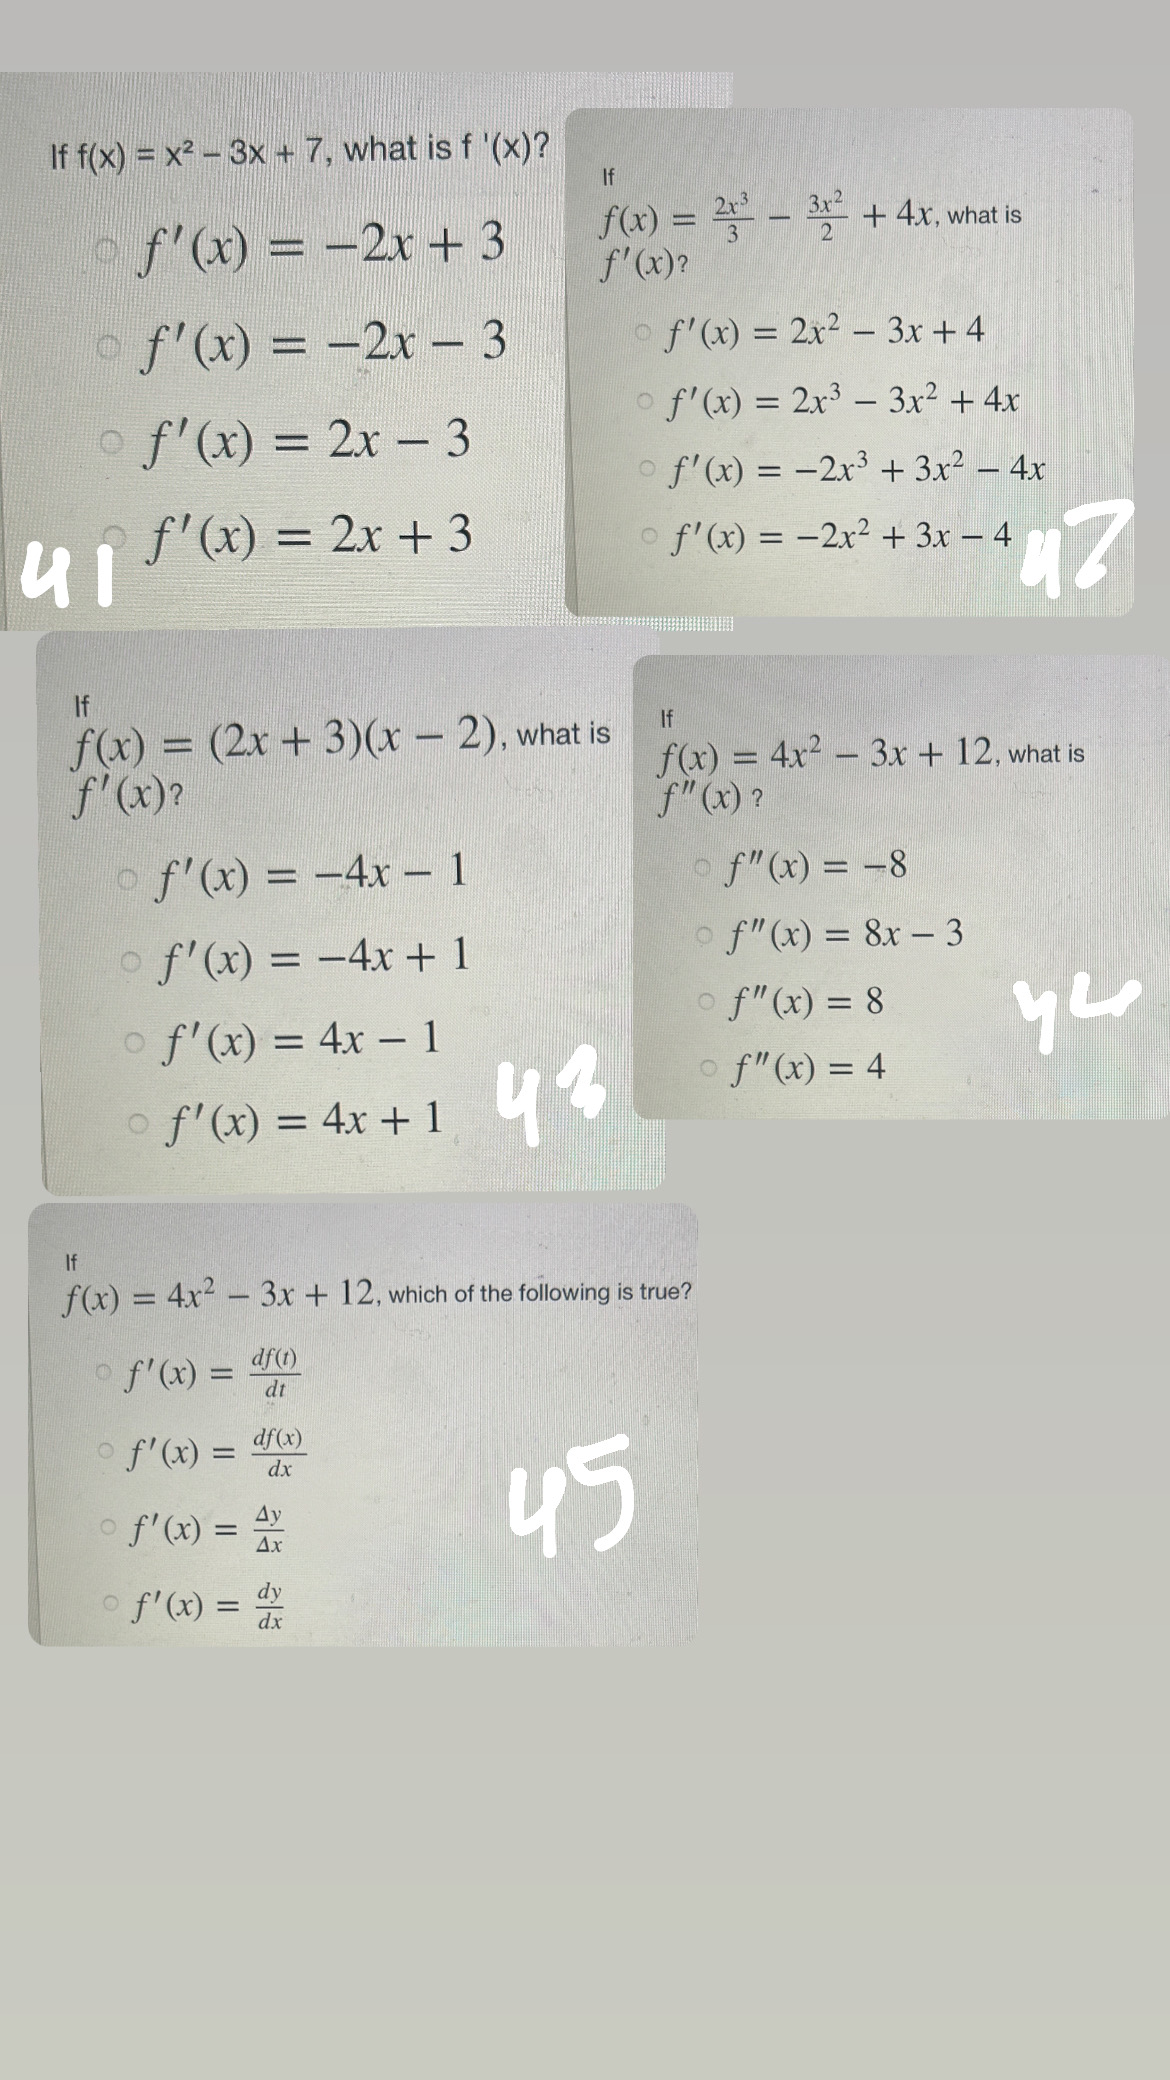 If f(x) = x² − 3x + 7, what is f '(x)?
f'(x) = −2x + 3
f'(x) = −2x − 3
f'(x) = 2x − 3
f'(x) = 2x + 3
41
If
f(x) = 2x³/3 − 3x²/2 + 4x, what is
f'(x)?
f'(x) = 2x² − 3x + 4
f'(x) = 2x³ − 3x² + 4x
f'(x) = −2x³ + 3x² − 4x
f'(x) = −2x² + 3x − 4
42
If
f(x) = (2x + 3)(x − 2), what is
f'(x)?
f'(x) = −4x − 1
f'(x) = −4x + 1
f'(x) = 4x − 1
f'(x) = 4x + 1
43
If
f(x) = 4x² − 3x + 12, what is
f''(x) ?
f''(x) = −8
f''(x) = 8x − 3
f''(x) = 8
f''(x) = 4
44
If
f(x) = 4x² − 3x + 12, which of the following is true?
f'(x) = df(t)/dt
f'(x) = df(x)/dx
f'(x) = Δy/Δx
f'(x) = dy/dx
45